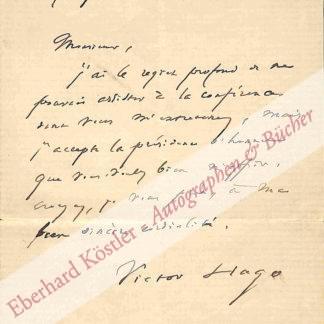 Monsieur,
j'ai le regret profond de ne
pouvoir assister à la conférence
dont vous m'entretenez, mais
j'accepte la présidence d'honneur
que vous voulez bien m'offrir.
croyez, je vous prie, à ma
bien sincère cordialité.
Victor Hugo
Eberhard Köstler Autographen & Bücher